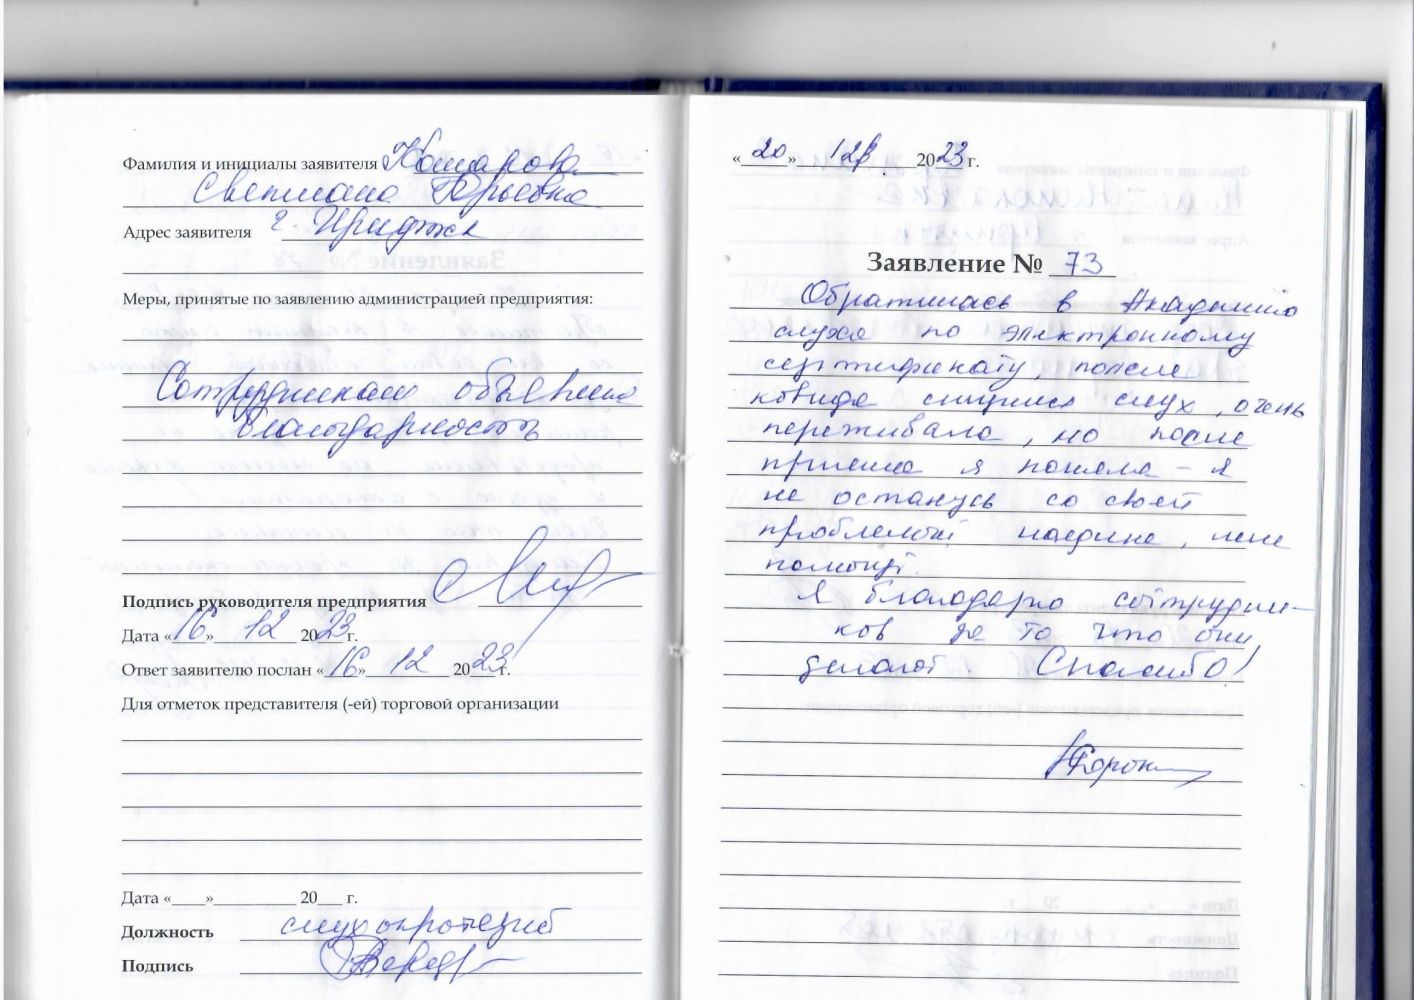 Фамилия и инициалы заявителя Комарова
Светлана Юрьевна
Адрес заявителя г.
Меры, принятые по заявлению администрацией предприятия:
Сотрудникам объявлена
благодарность
Подпись руководителя предприятия
Дата «16» 12 2023 г.
Ответ заявителю послан «16» 12 2023 г.
Для отметок представителя (-ей) торговой организации
Дата «____»__________ 20___ г.
Должность слухопротезист
Подпись
«20» 12 2023 г.
Заявление № 73
Обратилась в Академию
слуха по электронному
сертификату, после
ковида снизился слух, очень
переживала, но после
приема я поняла – я
не останусь со своей
проблемой наедине, мне
помогут.
Я благодарю сотрудни-
ков за то что они
делают. Спасибо!